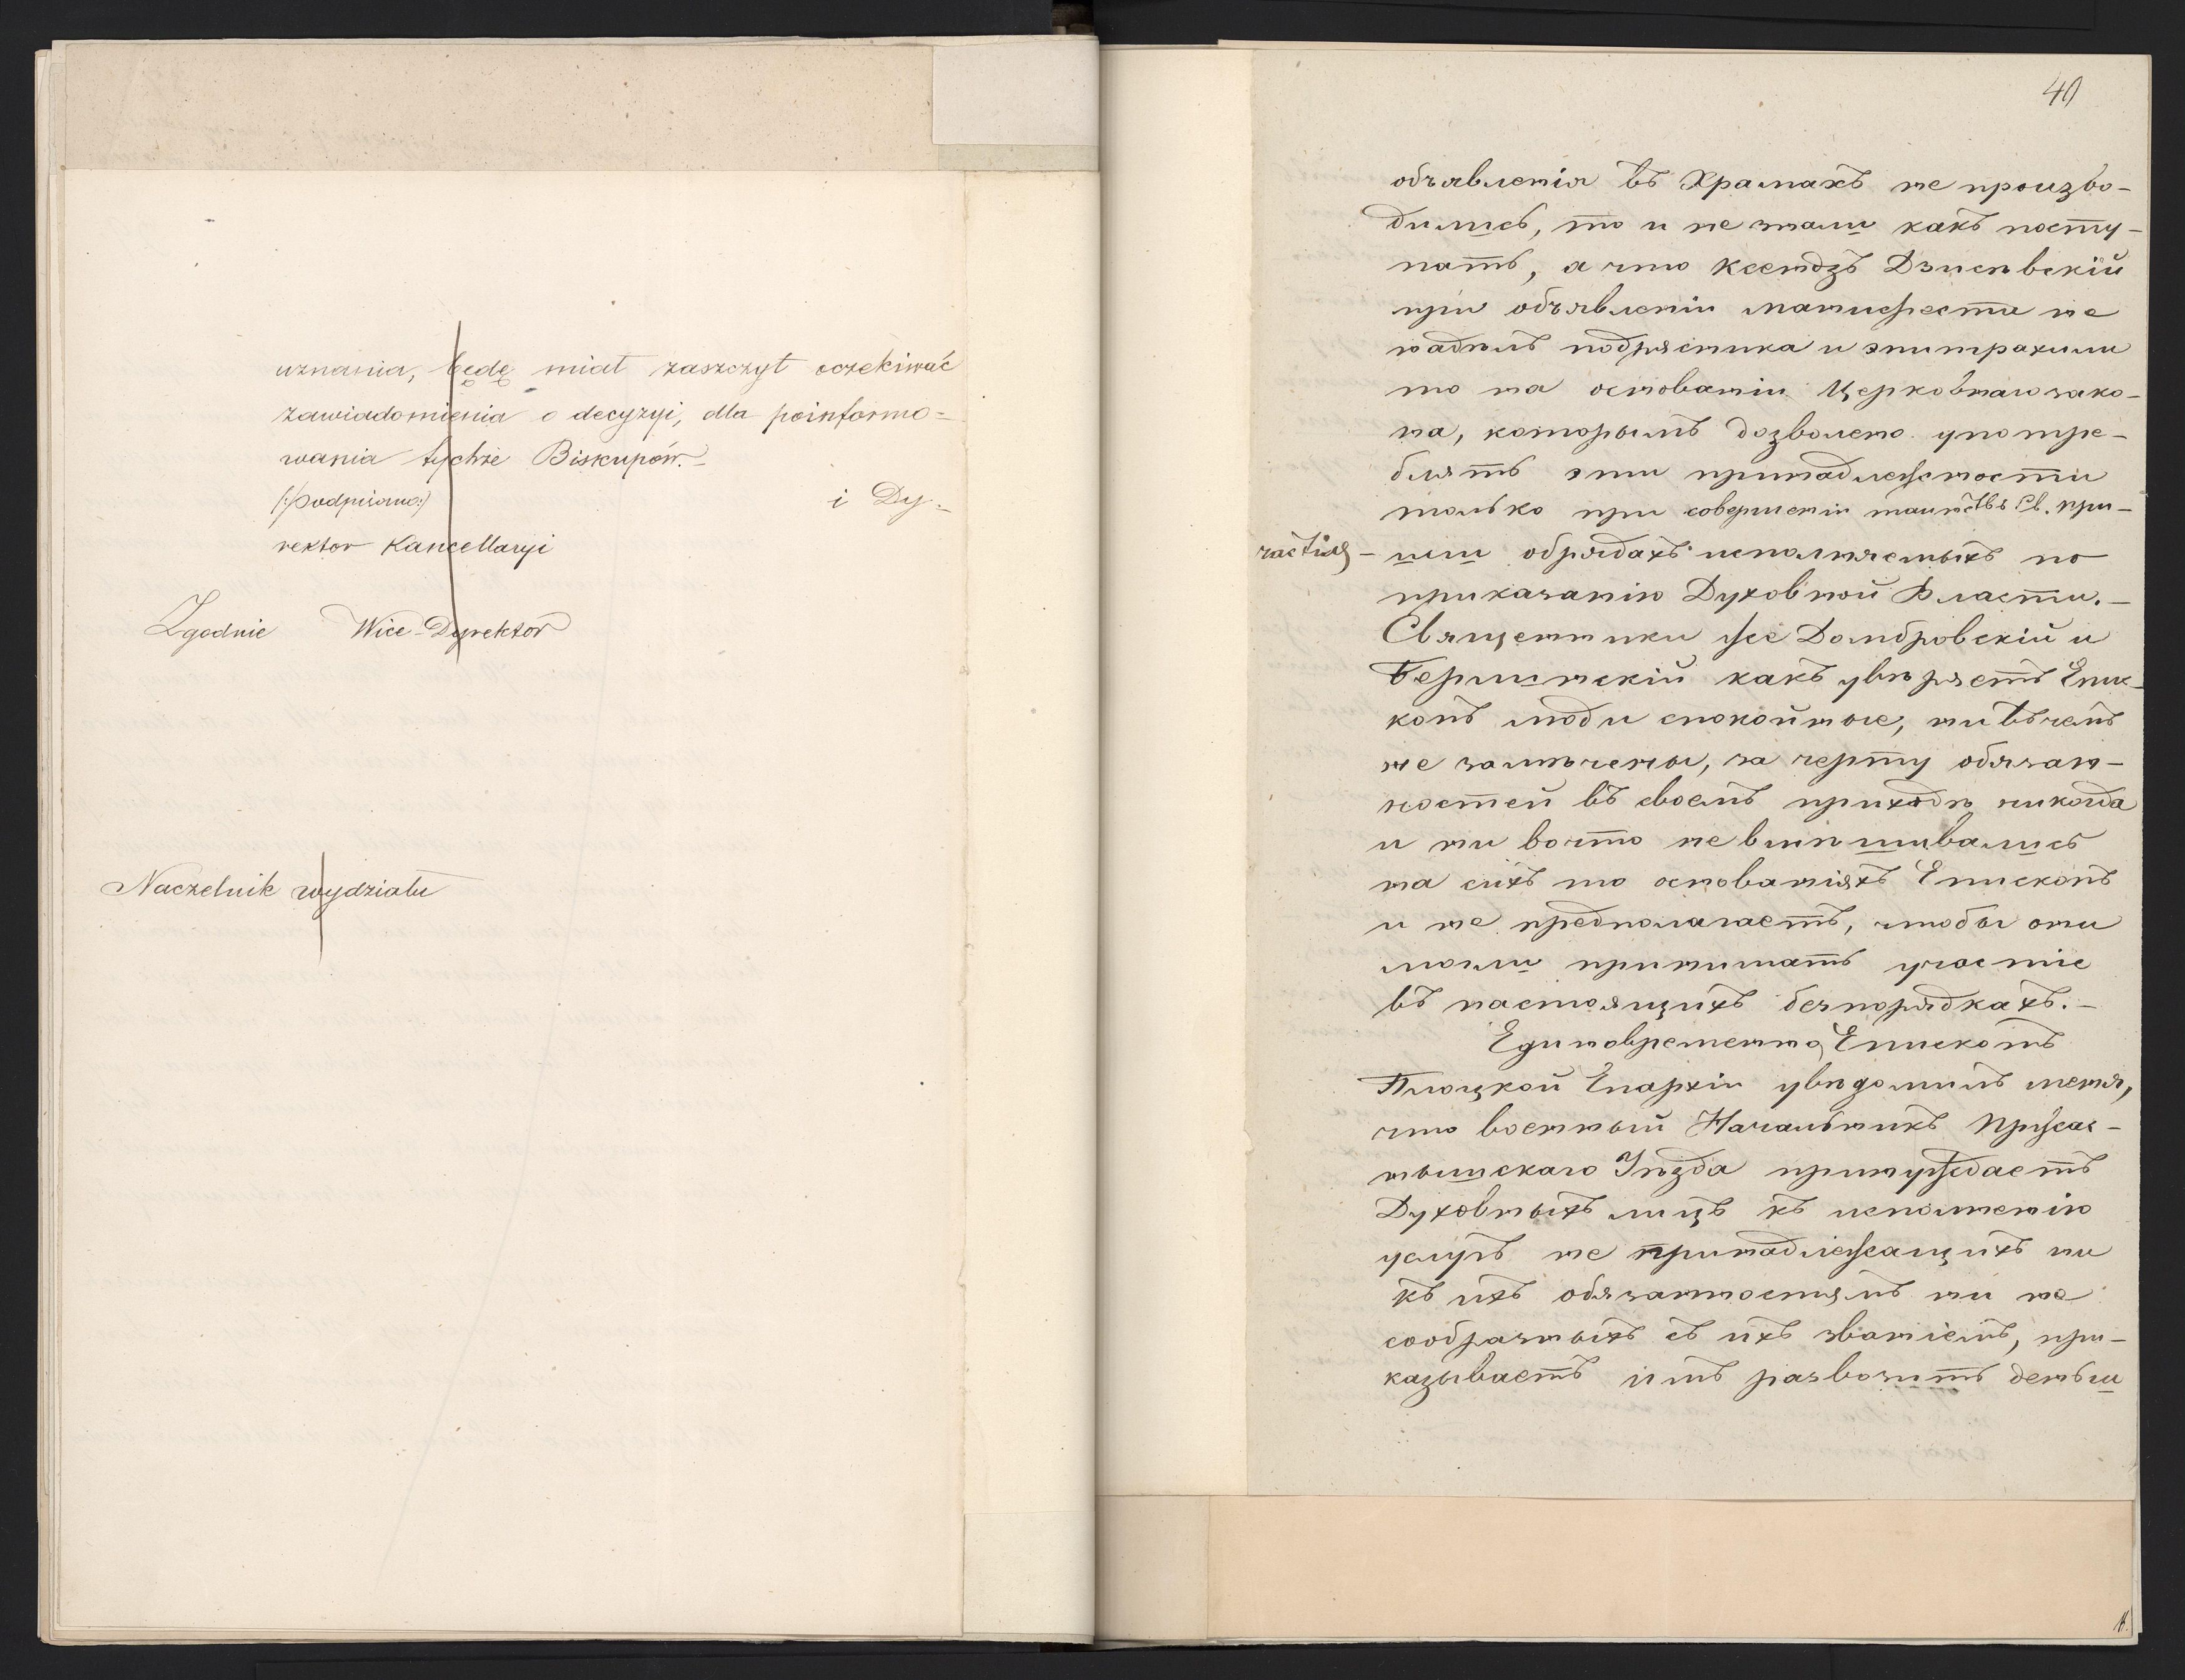 uznania, będę miał zaszczyt oczekiwać
zawiadomienia o decyzyi, dla poinformo=
wania tychże Biskupów.–
/:podpisano:/ i Dy=
rektor Kancellaryi
Zgodnie Wice-Dyrektor
Naczelnik wydziału
40
объявленія въ Храмахъ не произво-
дились, то и не знали какъ посту-
пать, а что Ксендзъ Дзисѣвскій
при объявленіи манифеста не
надѣлъ подрясника и эпитрахили
то на основаніи Церковнаго зако-
на, которымъ дозволено употре-
блять эти принадлежности
только при совершеніи таинствъ Св. При-
частія – или обрядахъ исполняемыхъ по
приказанію Духовной Власти.–
Священники же Домбровскій и
Бершинскій какъ увѣряетъ Епис-
копъ люди спокойные, ни въ чемъ
не замѣчены, за черту обязан-
ностей въ своемъ приходѣ никогда
и ни во что не вмѣшивались
на сихъ то основаніяхъ Епископъ
и не предполагаетъ, чтобы они
могли принимать участіе
въ настоящихъ безпорядкахъ.–
Единовременно, Епископъ
Плоцкой Епархіи увѣдомилъ меня,
что военный Начальникъ Пржас-
нышскаго Уѣзда принуждаетъ
Духовныхъ лицъ къ исполненію
услугъ не принадлежащихъ ни
къ ихъ обязанностямъ ни не
сообразныхъ съ ихъ званіемъ, при-
казываетъ имъ развозить деньги